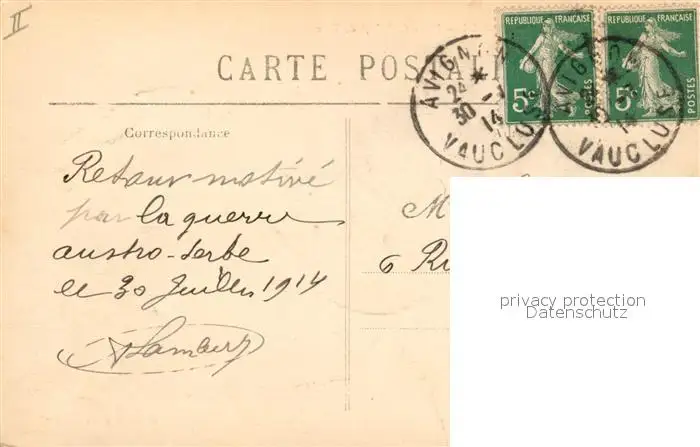 II
REPUBLIQUE FRANÇAISE REPUBLIQUE FRANÇAISE
5c POSTES 5c POSTES
CARTE POSTALE
AVIGNON
24
30 -7
14
VAUCLUSE
AVIGNON
14
VAUCLUSE
Correspondance
Retour motivé
par la guerre
austro-serbe
le 30 Juillet 1914
ALambert
M
6 Ru
privacy protection
Datenschutz